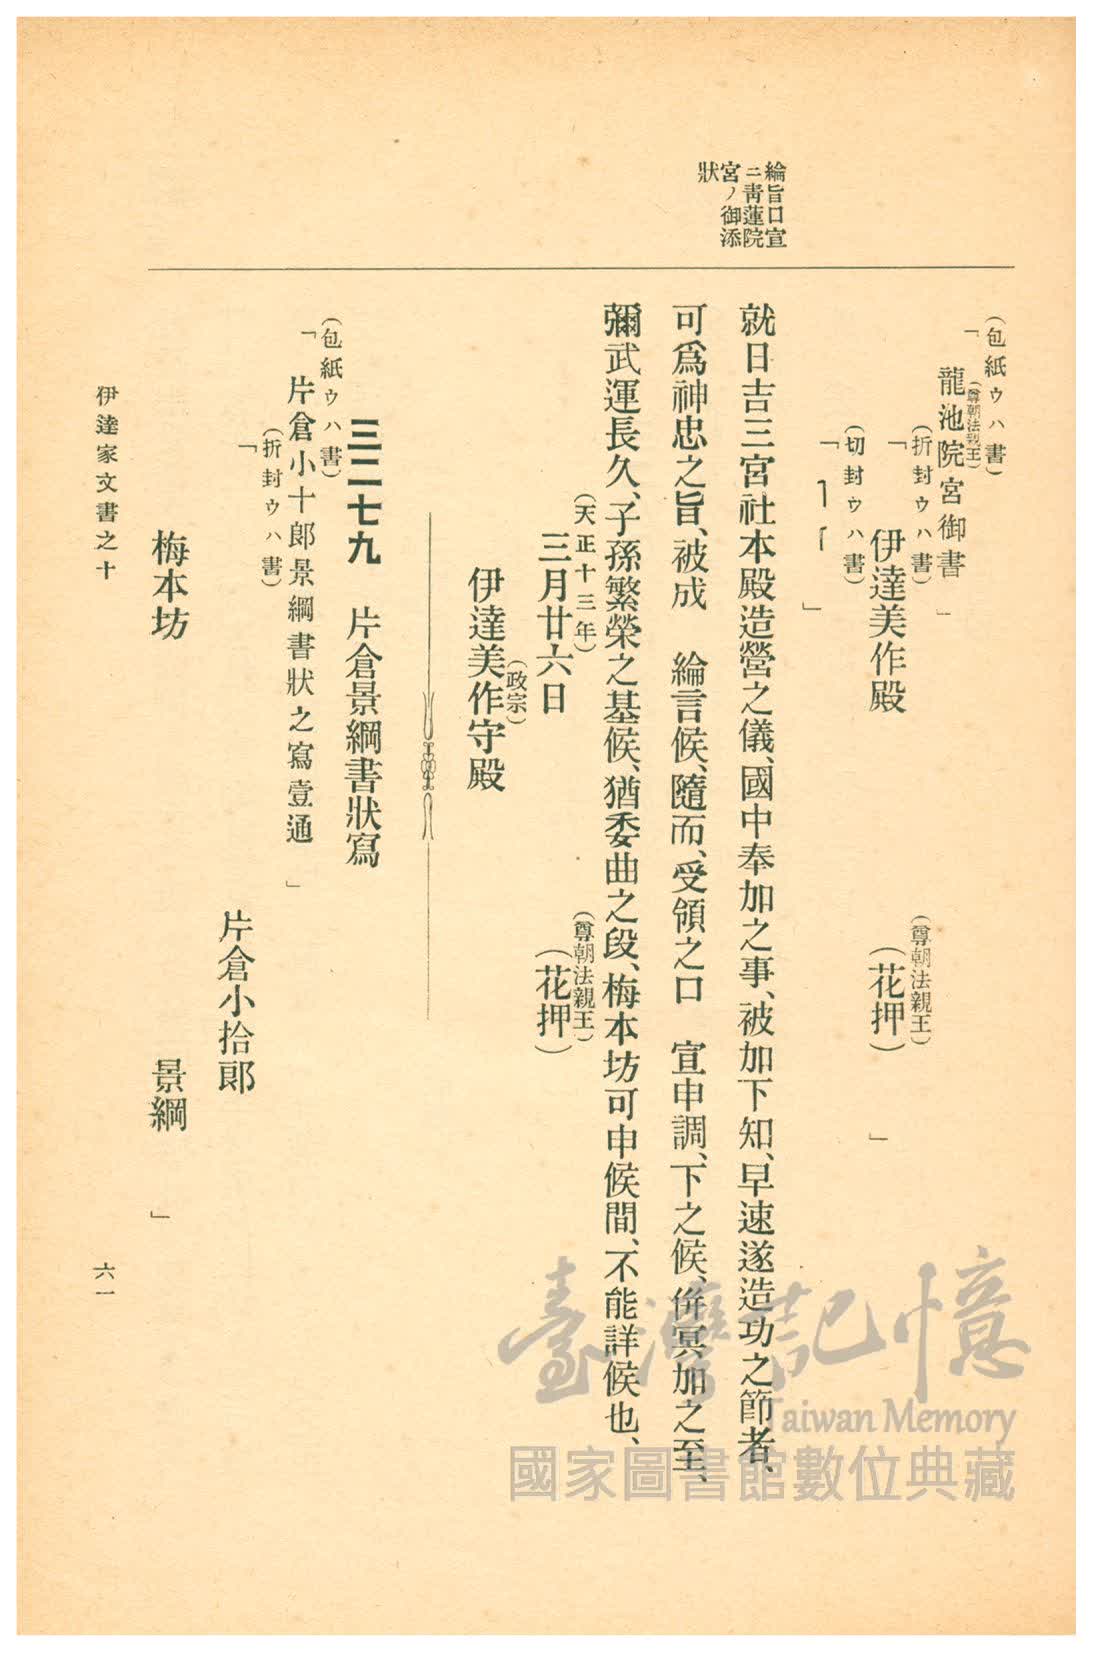 綸旨口宣
ニ青蓮院
宮ノ御添
狀
(包紙ウハ書)
「龍池院宮御書」
(尊朝法親王)
(折封ウハ書)
「伊達美作殿
(尊朝法親王)
(花押)」
(切封ウハ書)
「」
就日吉三宮社本殿造營之儀、國中奉加之事、被加下知、早速遂造功之節者、
可爲神忠之旨、被成 綸言候、隨而、受領之口 宣申調、下之候、併冥加之至、
彌武運長久、子孫繁榮之基候、猶委曲之段、梅本坊可申候間、不能詳候也、
(天正十三年)
三月廿六日
(尊朝法親王)
(花押)
(政宗)
伊達美作守殿
三二七九 片倉景綱書狀寫
(包紙ウハ書)
「片倉小十郎景綱書狀之寫壹通」
(折封ウハ書)
「
片倉小拾郎
梅本坊 景綱」
伊達家文書之十
六一
臺灣記憶
Taiwan Memory
國家圖書館數位典藏